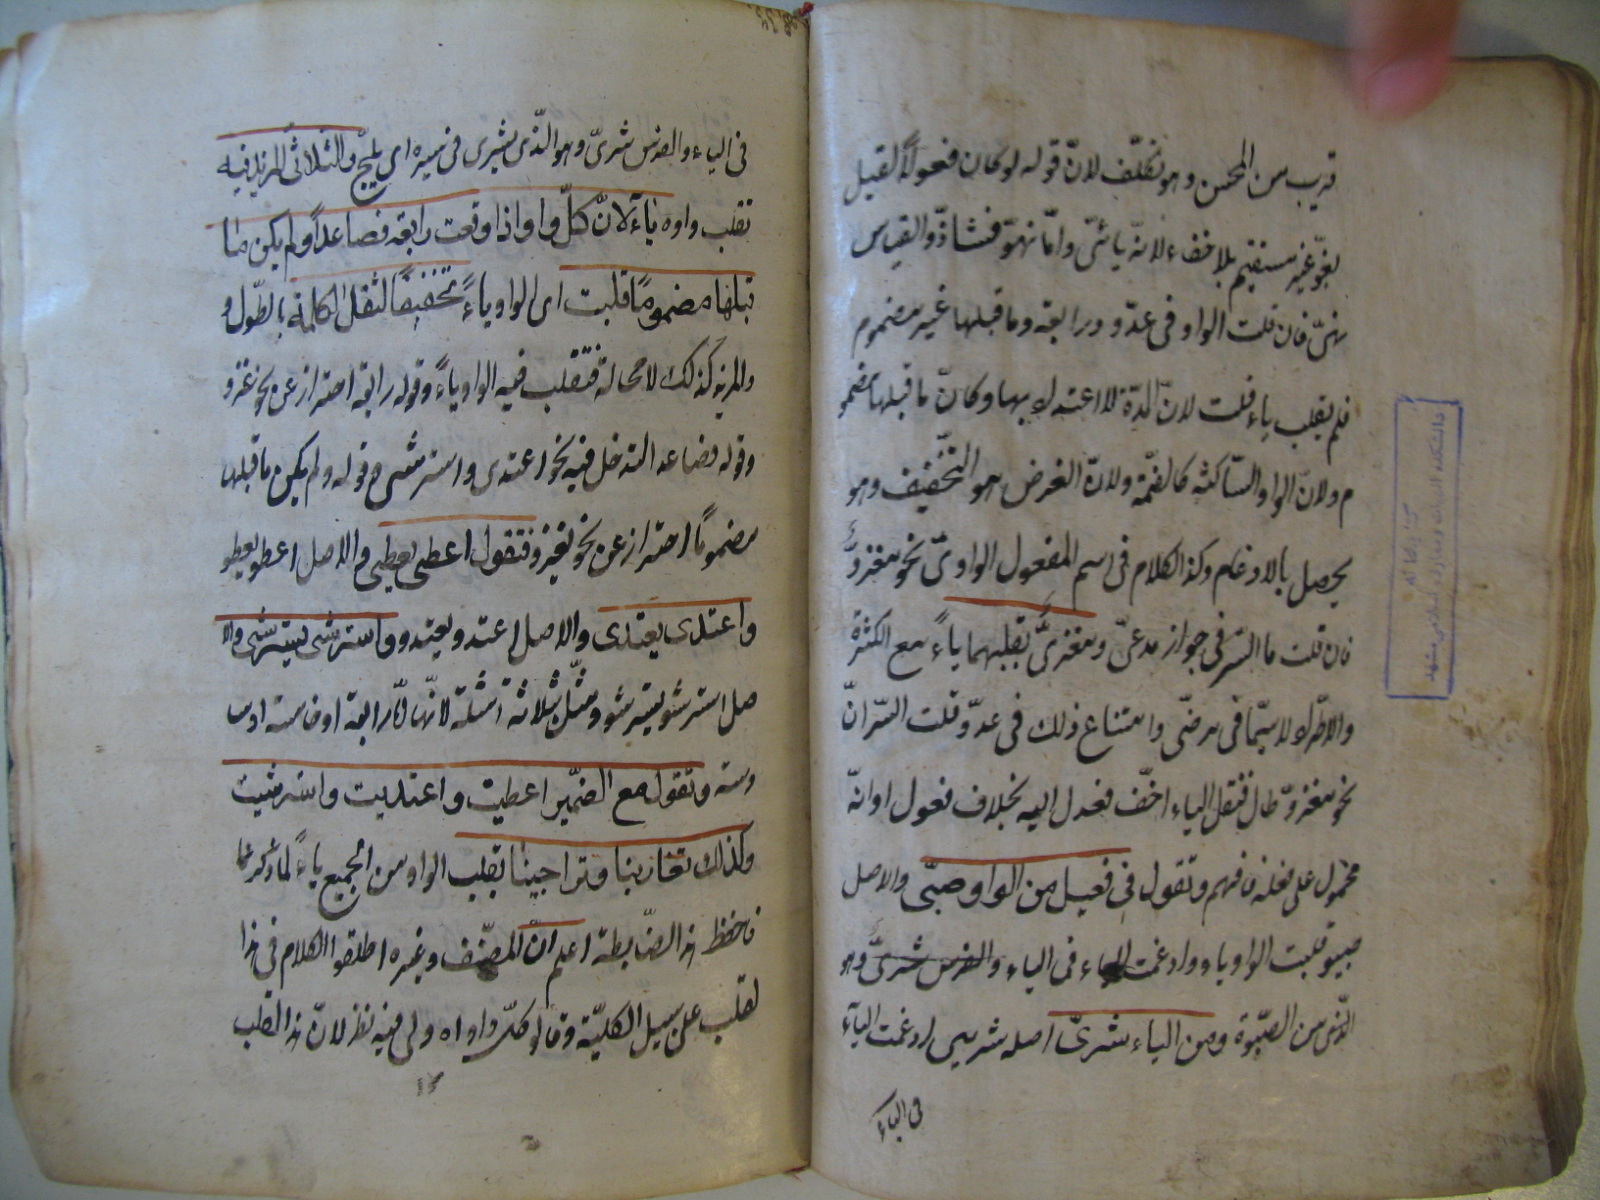 قريب من المحسن وهو تكلّف لانّ قوله لو كان فعولاً لقيل
بغوّ غير مستقيم بلا خفاء لانه يائىّ وامّا نهوّ فشاذّ والقياس
نهىّ فان قلت الواو فى عدّو رابعة وما قبلها غير مضموم
فلم يقلب ياء قلت لانّ المدّة لا اعتداد بها وكانّ ما قبلها مضمو
م ولانّ الواو السّاكنة كالضمّة ولانّ الغرض هو التّخفيف وهو
يحصل بالادغام وكذا الكلام فى اسم المفعول الواوىّ نحو مغزوّ
فان قلت ما السّر فى جواز مدعىّ ومغزىّ بقلبهما ياءً مع الكثرة
والاطّراد لا سيّما فى مرضىّ وامتناع ذلك فى عدّو قلت السّر انّ
نحو مغزوّ طال فثقل والياء اخفّ فعدل اليه بخلاف فعول او انّه
محمول على فعله فافهم وتقول فى فعيل من الواو صبّى والاصل
صبيو قلبت الواو ياء وادغمت الياء فى الياء والفرس شرىّ وهو
الّذى من الصّبوة ومن الياء شرىّ اصله شريى ادغمت الياء
فى الياء
فى الياء والفرس شرىّ وهو الّذى يشرى فى سيره اى يلجّ والثلاثى المزيد فيه
تقلب واوه ياءً لانّ كلّ واو اذا وقعت رابعة فصاعداً ولم يكن ما
قبلها مضموماً قلبت اى الواو ياءً تخفيفاً لثقل الكلمة بالطّول و
والمزيد كذلك لا محالة فتقلب فيه الواو ياءً وقوله رابعة احتراز عن نحو غزو
وقوله فصاعدا لتدخل فيه نحو اعتدى واسترشى وقوله ولم يكن ما قبلها
مضموماً احتراز عن نحو يغزو فتقول اعطى يعطى والاصل اعطو يعطو
واعتدى يعتدى والاصل اعتدو يعتدو واسترشى يسترشى والا
صل استرشو يسترشو ومثّل بثلاثة امثلة لانّها امّا رابعة او خامسة او سا
دسة وتقول مع الضمير اعطيت واعتديت واسترشيت
وكذلك تغازينا وتراجينا بقلب الواو من الجميع ياءً لما ذكرنا
فاحفظ هذا الضّابطة اعلم انّ المصنّف وغيره اطلقوا الكلام فى هذا
لقلب على سبيل الكليّة وقالوا كلّ واو اه ولى فيه نظر لانّ هذا القلب